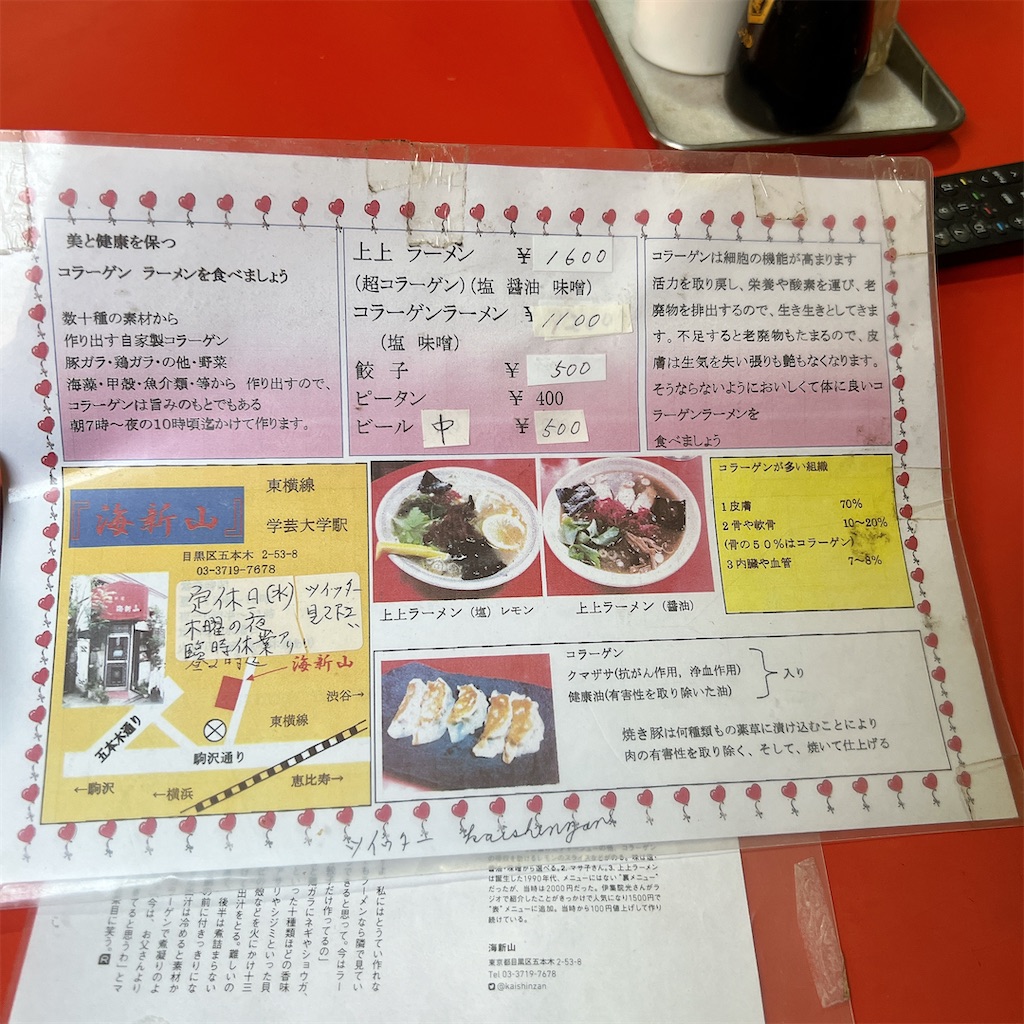 美と健康を保つ
コラーゲン ラーメンを食べましょう
数十種の素材から
作り出す自家製コラーゲン
豚ガラ・鶏ガラ・の他・野菜
海藻・甲殻・魚介類・等から 作り出すので、
コラーゲンは旨みのもとでもある
朝7時～夜の10時頃迄かけて作ります。
上上 ラーメン ¥ 1600
(超コラーゲン)(塩 醤油 味噌)
コラーゲンラーメン ¥ 1100
(塩 味噌)
餃 子 ¥ 500
ピータン ¥ 400
ビール 中 ¥ 500
コラーゲンは細胞の機能が高まります
活力を取り戻し、栄養や酸素を運び、老
廃物を排出するので、生き生きとしてきま
す。不足すると老廃物もたまるので、皮
膚は生気を失い張りも艶もなくなります。
そうならないようにおいしくて体に良いコ
ラーゲンラーメンを
食べましょう
『海新山』
東横線
学芸大学駅
目黒区五本木 2-53-8
03-3719-7678
海新山
定休日(水)
木曜の夜
臨時休業アリ!
ツイッター
見て下さい
海新山
渋谷→
東横線
五本木通り
駒沢通り
恵比寿→
←駒沢
←横浜
上上ラーメン(塩)レモン
上上ラーメン(醤油)
コラーゲンが多い組織
1皮膚 70%
2骨や軟骨 10～20%
(骨の50%はコラーゲン)
3内臓や血管 7～8%
コラーゲン
クマザサ(抗がん作用，浄血作用)
健康油(有害性を取り除いた油)
入り
焼き豚は何種類もの薬草に漬け込むことにより
肉の有害性を取り除く、そして、焼いて仕上げる
ツイッター kaishinzan
私にはとうてい作れな
ラーメンなら隣で見てい
きると思って。今はラー
だけ作ってるの」
鶏ガラにネギやショウガ、
リやシジミといった貝
った十種類ほどの香味
殻などを火にかけ十三
出汁をとる。難しいの
後半は煮詰まらない
の前に付きっきりにな
出汁は冷めると素材か
ーゲンで煮凝りのよ
今は、お父さんより
てると思うわ」とマ
来目に笑う。
醤油・味噌から選べる。2.マサ子さん。3.上上ラーメン
は誕生した1990年代、メニューにはない"裏メニュー"
だったが、当時は2000円だった。伊集院光さんがラ
ジオで紹介したことがきっかけで人気になり1500円で
"表"メニューに追加。当時から100円値上げして作り
続けている。
海新山
東京都目黒区五本木2-53-8
Tel 03-3719-7678
@kaishinzan